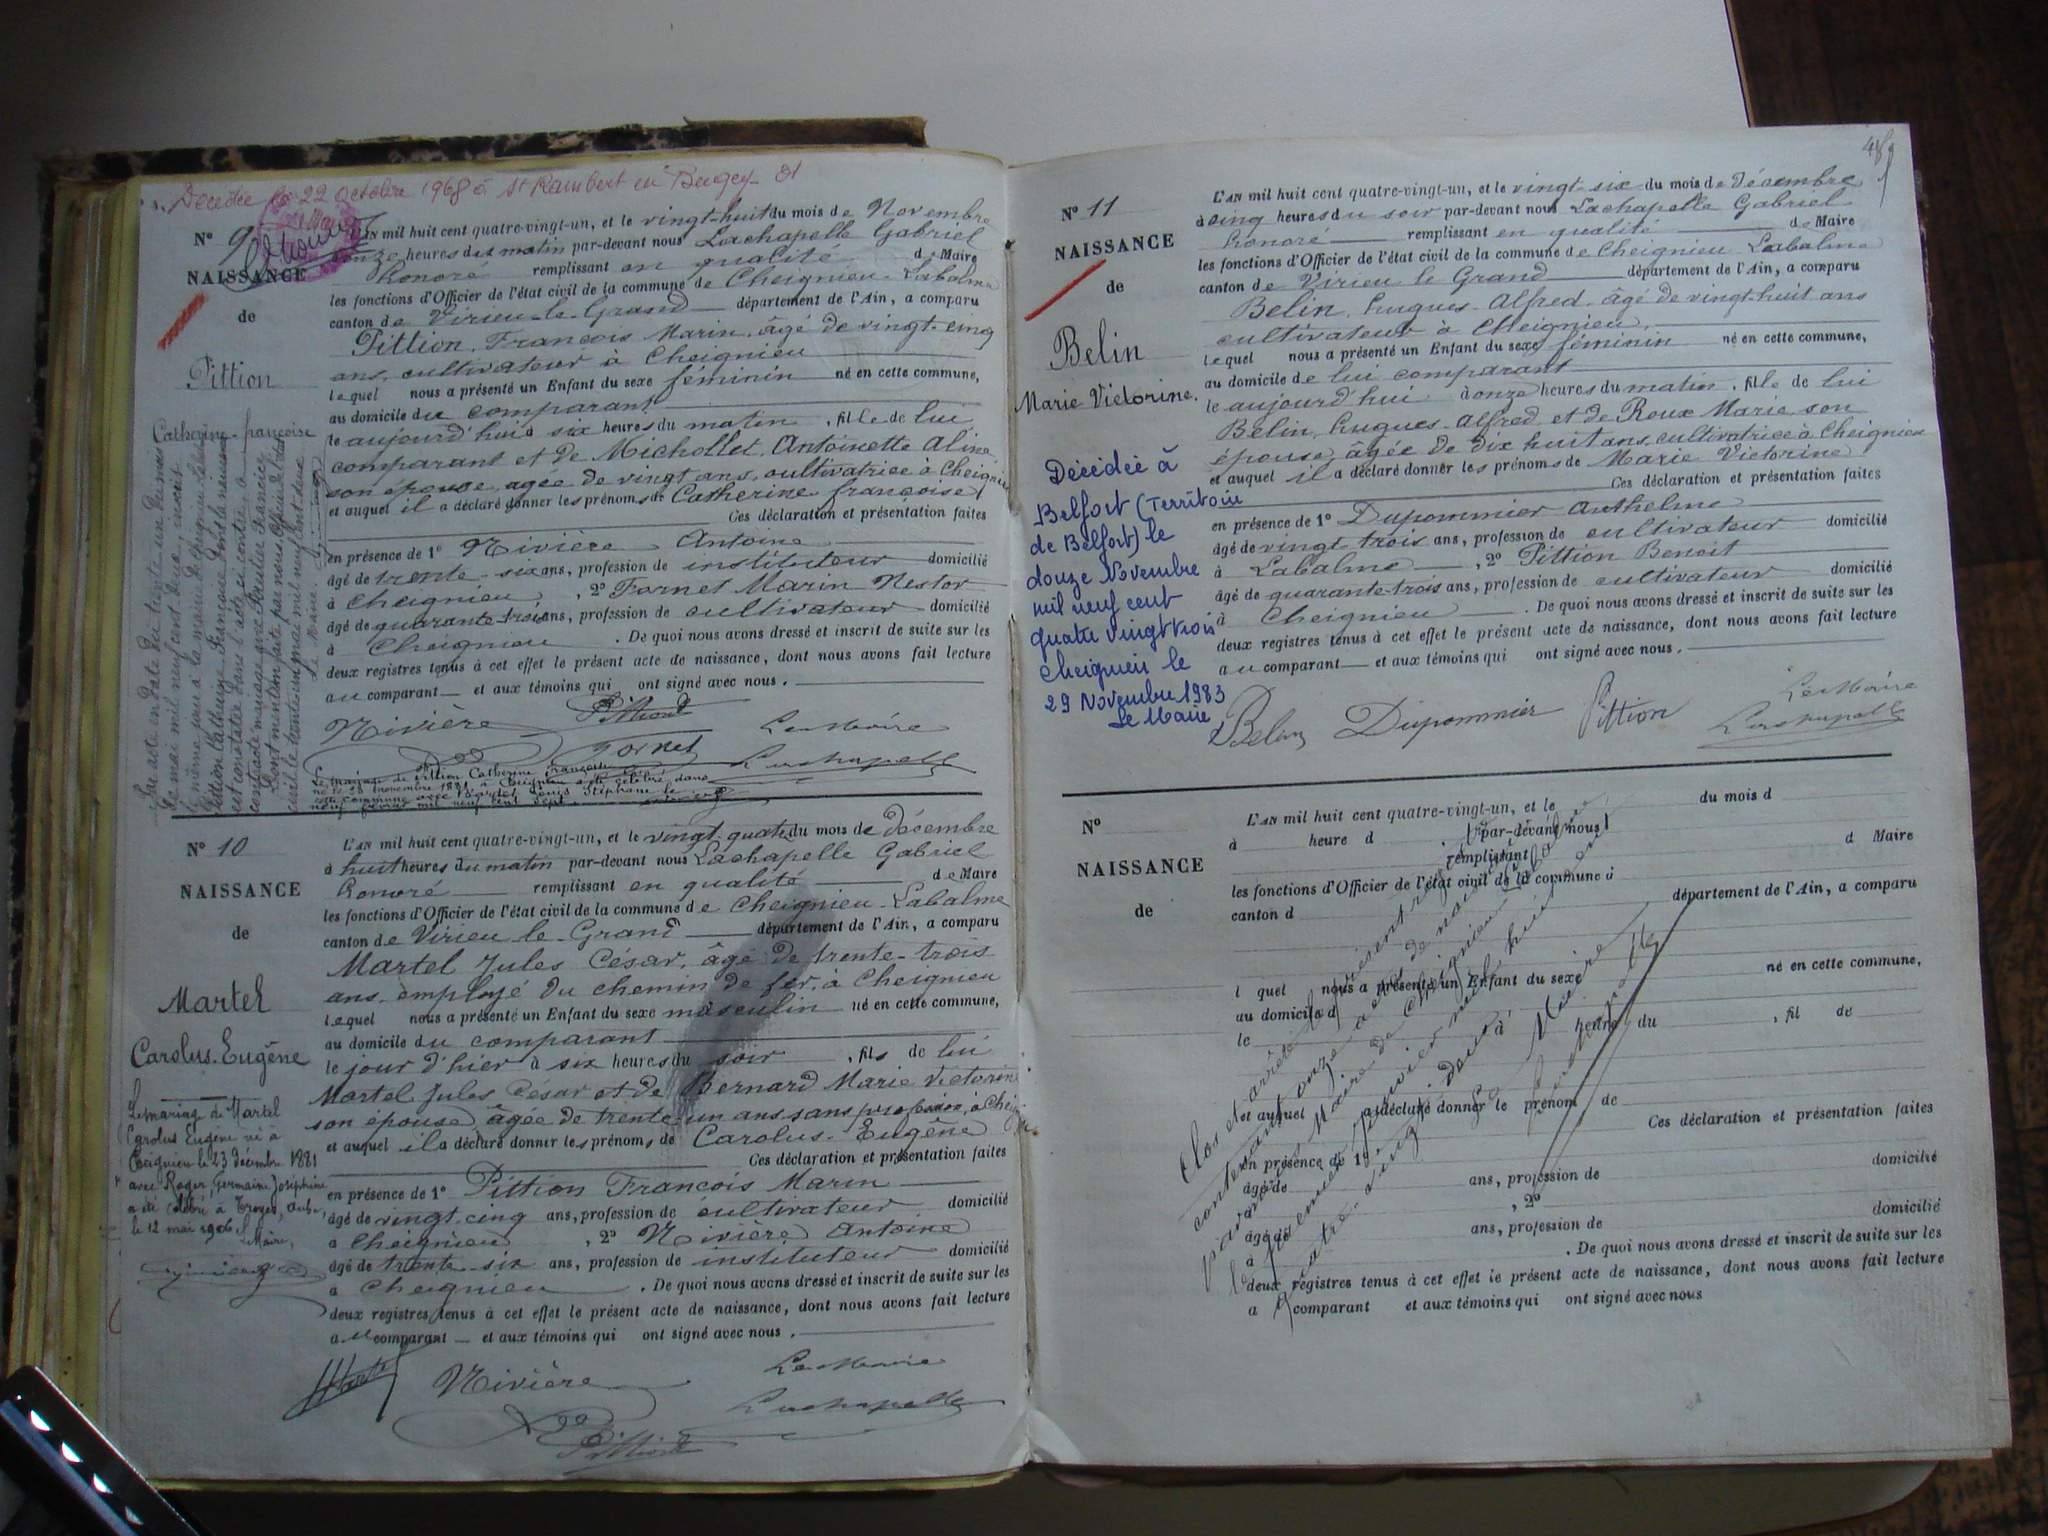 Décédée le 22 octobre 1968 à St Rambert en Bugey 01
N° 9
NAISSANCE
de
Pittion
Catherine-françoise
L'AN mil huit cent quatre-vingt-un, et le vingt-huit du mois de Novembre
à onze heures du matin par-devant nous Lachapelle Gabriel
honoré remplissant en qualité de Maire
les fonctions d'Officier de l'état civil de la commune de Cheignieu-Labalme
canton de Virieu-le-Grand département de l'Ain, a comparu
Pittion François Marin, âgé de vingt-cinq
ans, cultivateur à Cheignieu
lequel nous a présenté un Enfant du sexe féminin né en cette commune,
au domicile du comparant
le aujourd'hui à six heures du matin, fille de lui
comparant et de Michollet Antoinette Aline
son épouse, agée de vingt ans, cultivatrice à Cheignieu
et auquel il a déclaré donner les prénoms de Catherine françoise
Ces déclaration et présentation faites
en présence de 1° Rivière Antoine
âgé de trente-six ans, profession de instituteur domicilié
à Cheignieu, 2° Fornet Marin Nestor
âgé de quarante-trois ans, profession de cultivateur domicilié
à Cheignieu. De quoi nous avons dressé et inscrit de suite sur les
deux registres tenus à cet effet le présent acte de naissance, dont nous avons fait lecture
au comparant et aux témoins qui ont signé avec nous.
Rivière Pittion Le Maire
Fornet Lachapelle
Le mariage de Pittion Catherine Françoise
née le 28 novembre 1881 à Cheignieu a été célébré dans
cette commune avec Louis Stéphane le
neuf février mil neuf cent sept
N° 10
NAISSANCE
de
Martel
Carolus-Eugène
Le mariage de Martel
Carolus Eugène né à
Cheignieu le 23 décembre 1881
avec Roger, Germaine Joséphine
a été célébré à Troyes, Aube,
le 12 mai 1906 Le Maire,
L'AN mil huit cent quatre-vingt-un, et le vingt-quatre du mois de décembre
à huit heures du matin par-devant nous Lachapelle Gabriel
honoré remplissant en qualité de Maire
les fonctions d'Officier de l'état civil de la commune de Cheignieu-Labalme
canton de Virieu le-Grand département de l'Ain, a comparu
Martel Jules César, âgé de trente-trois
ans, employé du chemin de fer, à Cheignieu
lequel nous a présenté un Enfant du sexe masculin né en cette commune,
au domicile du comparant
le jour d'hier à six heures du soir, fils de lui
Martel Jules César et de Bernard Marie Victorine
son épouse, âgée de trente un ans sans profession, à Cheignieu
et auquel il a déclaré donner les prénoms de Carolus-Eugène
Ces déclaration et présentation faites
en présence de 1° Pittion François Marin
âgé de vingt-cinq ans, profession de cultivateur domicilié
à Cheignieu, 2° Rivière Antoine
âgé de trente-six ans, profession de instituteur domicilié
à Cheignieu. De quoi nous avons dressé et inscrit de suite sur les
deux registres tenus à cet effet le présent acte de naissance, dont nous avons fait lecture
au comparant et aux témoins qui ont signé avec nous.
Martel Rivière Le Maire
Lachapelle
Pittion
N° 11
NAISSANCE
de
Belin
Marie Victorine.
Décédée à
Belfort (Territoire
de Belfort) le
douze Novembre
mil neuf cent
quatre vingt trois
Cheignieu le
29 Novembre 1983
Le Maire
L'AN mil huit cent quatre-vingt-un, et le vingt-six du mois de Décembre
à cinq heures du soir par-devant nous Lachapelle Gabriel
honoré remplissant en qualité de Maire
les fonctions d'Officier de l'état civil de la commune de Cheignieu Labalme
canton de Virieu le Grand département de l'Ain, a comparu
Belin, hugues-Alfred, âgé de vingt-huit ans
cultivateur à Cheignieu,
lequel nous a présenté un Enfant du sexe féminin né en cette commune,
au domicile de lui comparant
le aujourd'hui à onze heures du matin, fille de lui
Belin, hugues-Alfred et de Roux Marie son
épouse, âgée de dix huit ans, cultivatrice à Cheignieu
et auquel il a déclaré donner les prénoms de Marie Victorine
Ces déclaration et présentation faites
en présence de 1° Dupommier Anthelme
âgé de vingt-trois ans, profession de cultivateur domicilié
à Labalme, 2° Pittion Benoit
âgé de quarante-trois ans, profession de cultivateur domicilié
à Cheignieu. De quoi nous avons dressé et inscrit de suite sur les
deux registres tenus à cet effet le présent acte de naissance, dont nous avons fait lecture
au comparant et aux témoins qui ont signé avec nous.
Belin Dupommier Pittion Le Maire
Lachapelle
N°
NAISSANCE
de
L'AN mil huit cent quatre-vingt-un, et le du mois d
à heure d par-devant nous
remplissant d Maire
les fonctions d'Officier de l'état civil de la commune d
canton d département de l'Ain, a comparu
l quel nous a présenté un Enfant du sexe né en cette commune,
au domicile d
le à heure du, fil de
et auquel a déclaré donner le prénom de
Ces déclaration et présentation faites
en présence de 1°
âgé de ans, profession de domicilié
à, 2°
âgé de ans, profession de domicilié
à. De quoi nous avons dressé et inscrit de suite sur les
deux registres tenus à cet effet le présent acte de naissance, dont nous avons fait lecture
a comparant et aux témoins qui ont signé avec nous
Clos et arrêté le présent registre
contenant onze actes de naissance
par nous Maire de Cheignieu Labalme
le premier janvier mil huit cent
quatre-vingt-deux
Le Maire
Lachapelle